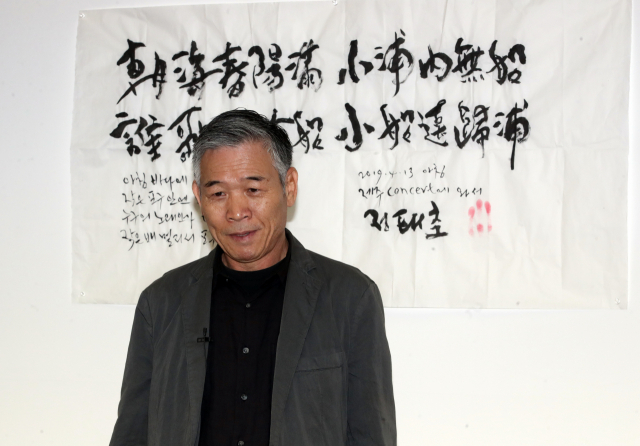 朝海春陽滿 小浦內無船
誰歌 船 小船遠歸浦
아침 바다에
작은 포구 안엔
누구의 노래인가
작은 배 멀리서
2019.4.13 아침
제주 concert에 와서
정태춘